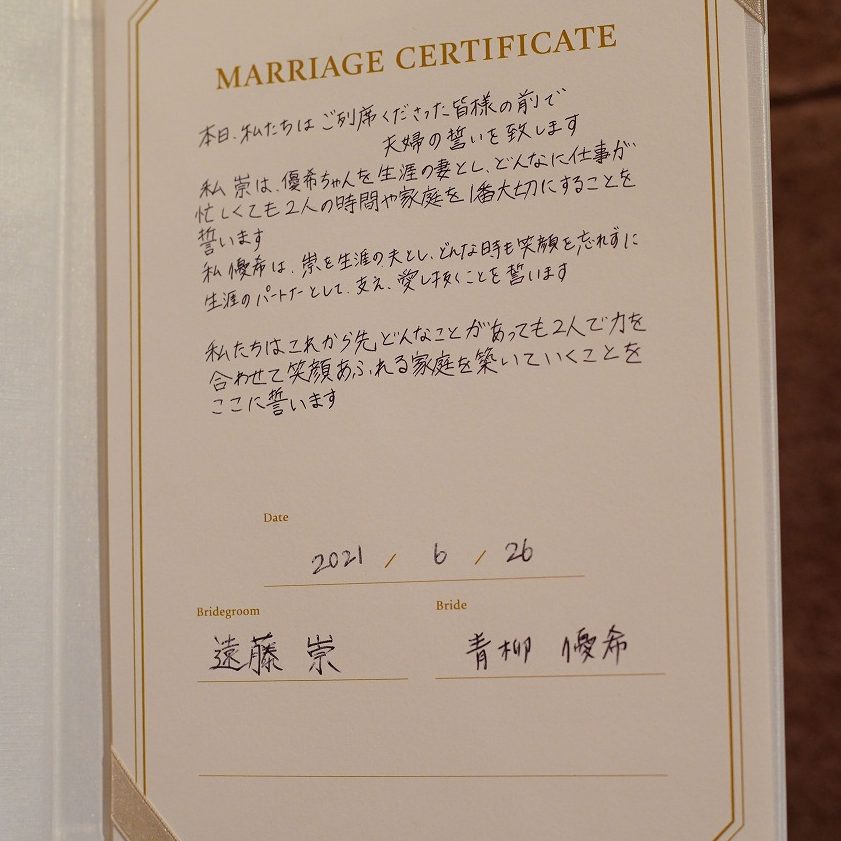 MARRIAGE CERTIFICATE
本日、私たちは ご列席くださった皆様の前で
夫婦の誓いを致します
私 崇は、優希ちゃんを生涯の妻とし、どんなに仕事が
忙しくても2人の時間や家庭を1番大切にすることを
誓います
私 優希は、崇を生涯の夫とし、どんな時も笑顔を忘れずに
生涯のパートナーとして、支え、愛し抜くことを誓います
私たちはこれから先、どんなことがあっても2人で力を
合わせて笑顔あふれる家庭を築いていくことを
ここに誓います
Date
2021 / 6 / 26
Bridegroom
Bride
遠藤 崇
青柳 優希